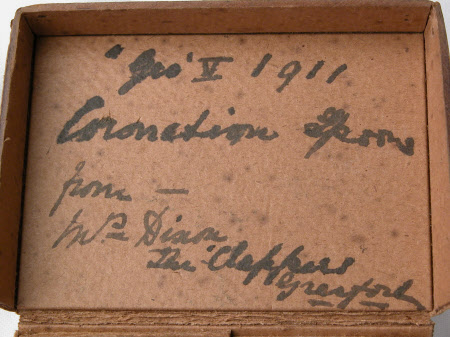 "Geo" V 1911
Coronation Spoons
from —
Mrs Dixon
The Clappers
Grayford